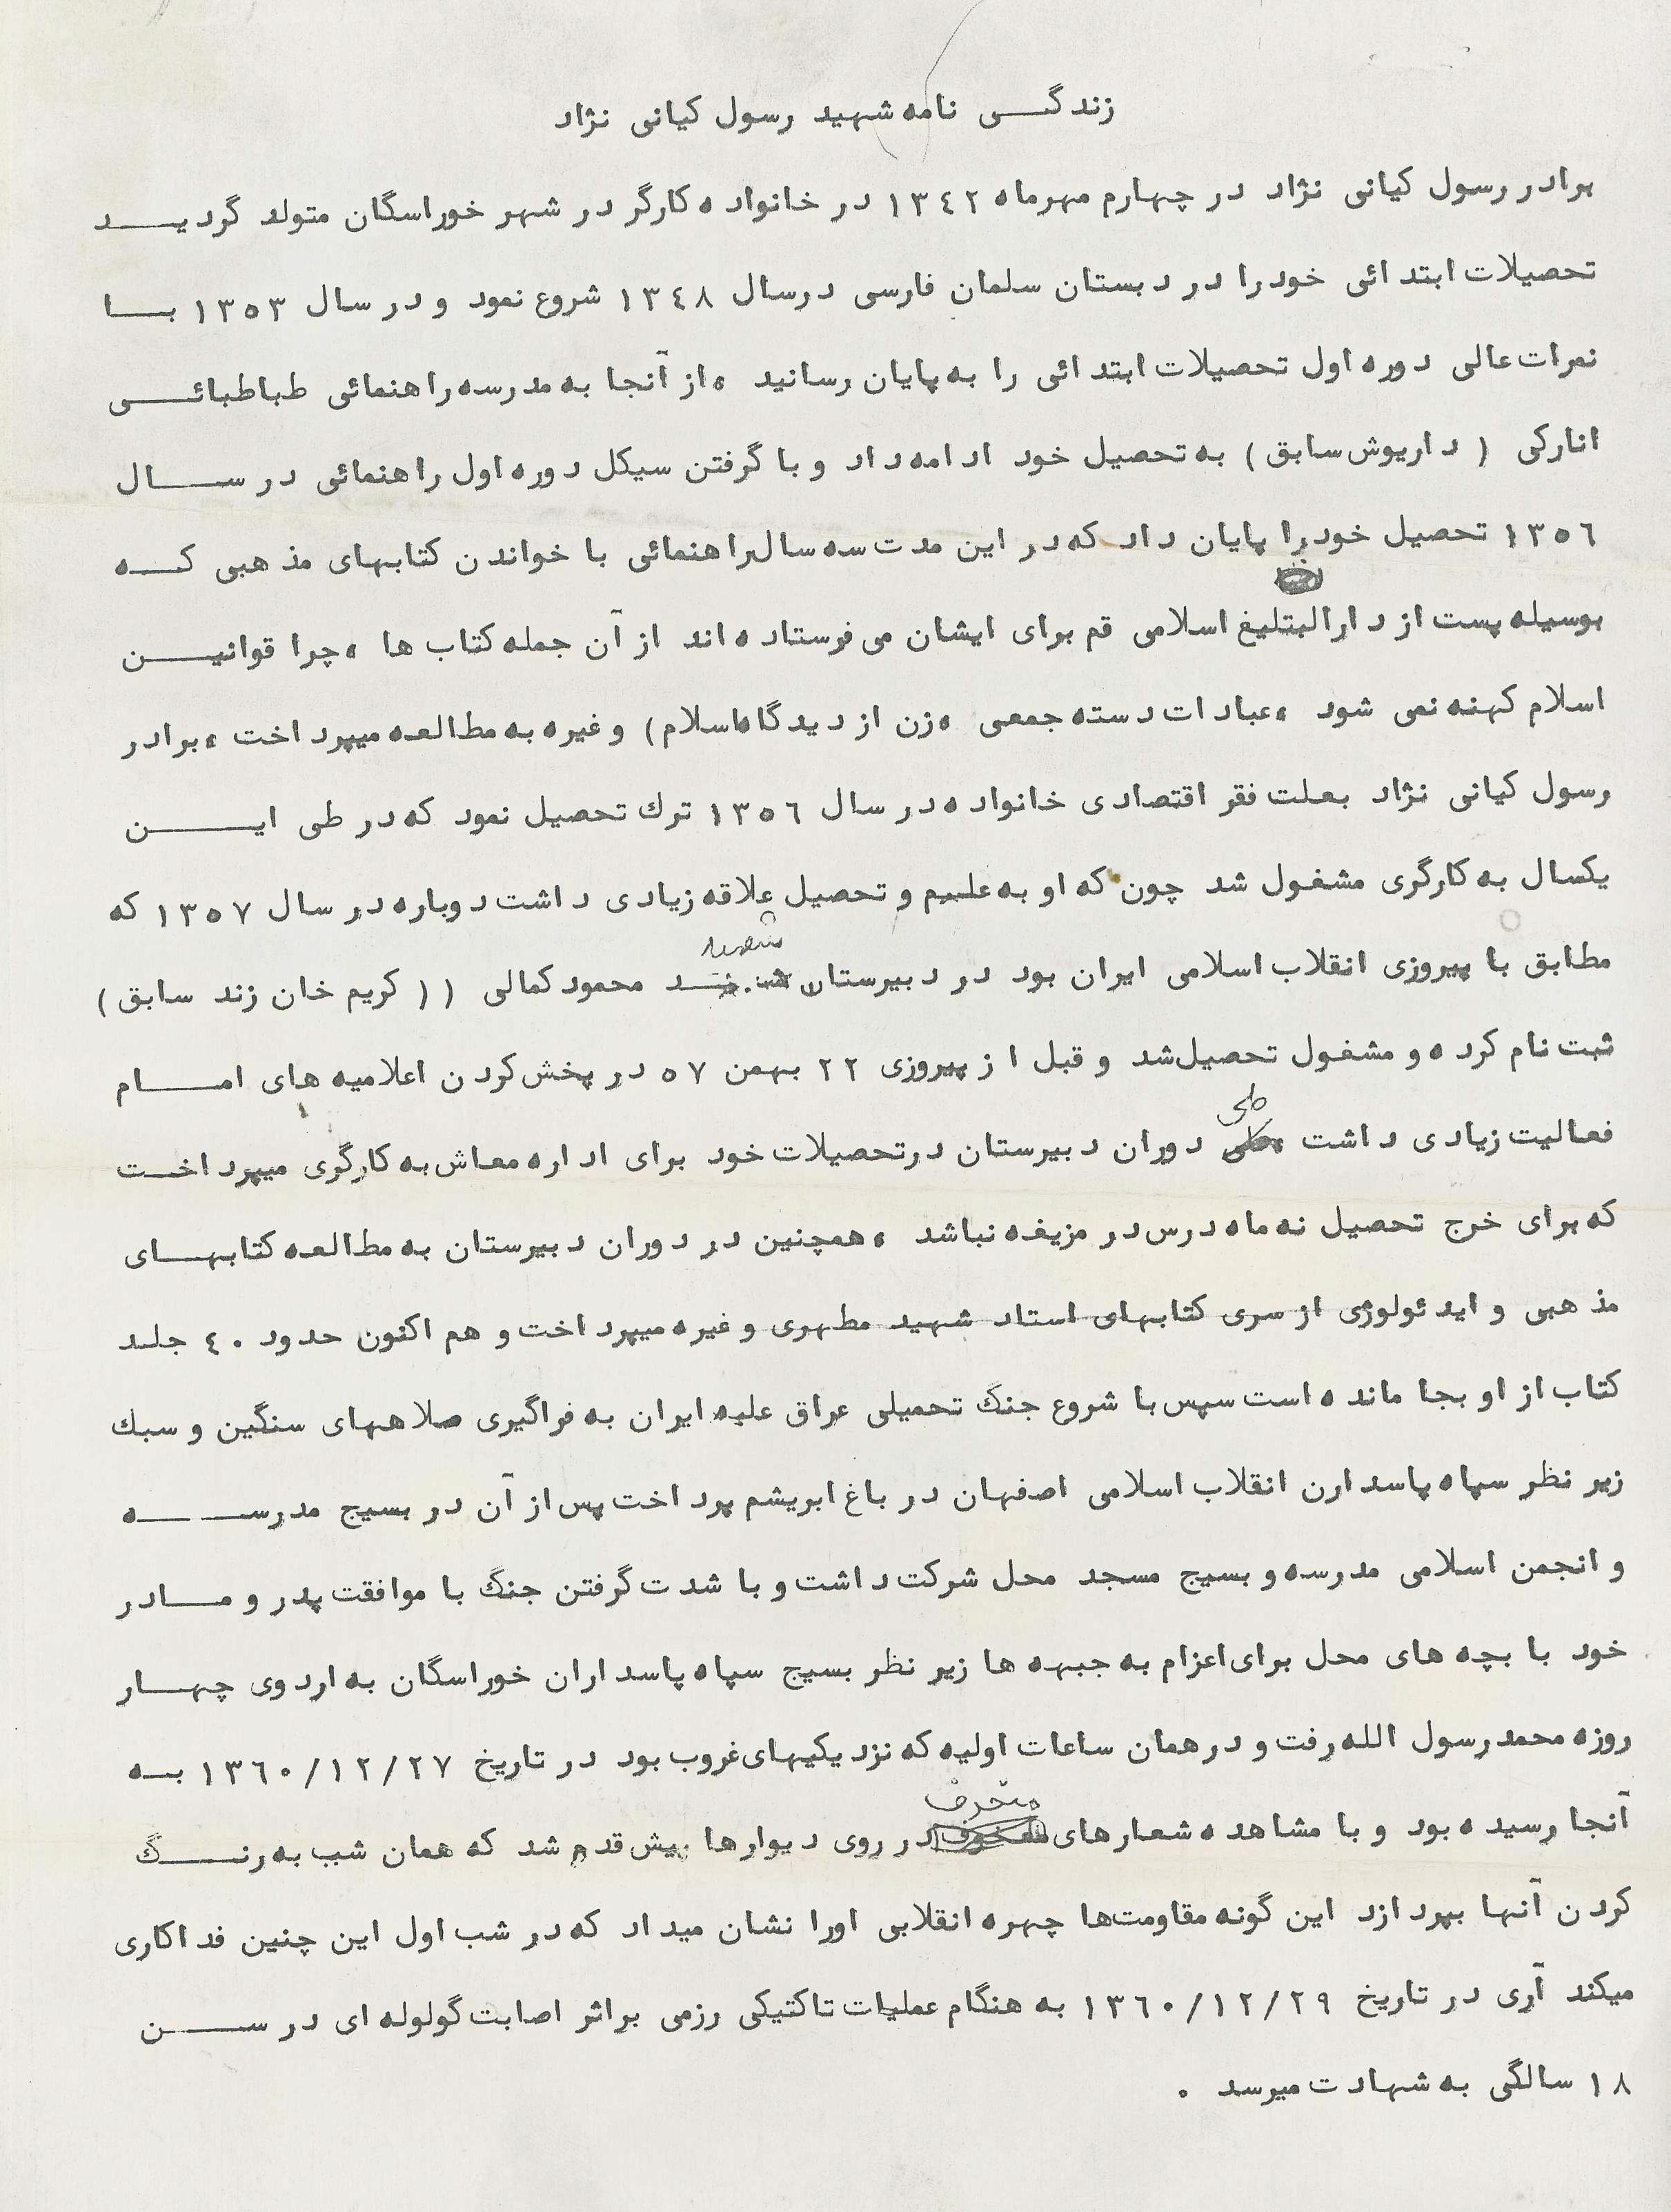 زندگی نامه شهید رسول کیانی نژاد
برادر رسول کیانی نژاد در چهارم مهرماه ۱۳۴۲ در خانواده کارگر در شهر خوراسگان متولد گردید
تحصیلات ابتدائی خودرا در دبستان سلمان فارسی درسال ۱۳۴۸ شروع نمود و در سال ۱۳۵۳ با
نمرات عالی دوره اول تحصیلات ابتدائی را به پایان رسانید ، از آنجا به مدرسه راهنمائی طباطبائی
انارکی ( داریوش سابق ) به تحصیل خود ادامه داد و با گرفتن سیکل دوره اول راهنمائی در سال
۱۳۵۶ تحصیل خودرا پایان داد که در این مدت سه سال راهنمائی با خواندن کتابهای مذهبی که
بوسیله پست از دارالبتلیغ اسلامی قم برای ایشان می فرستاده اند از آن جمله کتاب ها ، چرا قوانین
اسلام کهنه نمی شود ، عبادات دسته جمعی ، زن از دیدگاه اسلام ) و غیره به مطالعه میپرداخت ، برادر
رسول کیانی نژاد بعلت فقر اقتصادی خانواده در سال ۱۳۵۶ ترك تحصیل نمود که در طی این
یکسال به کارگری مشغول شد چون که او به علم و تحصیل علاقه زیادی داشت دوباره در سال ۱۳۵۷ که
مطابق با پیروزی انقلاب اسلامی ایران بود در دبیرستان شهید محمود کمالی (( کریم خان زند سابق )
ثبت نام کرده و مشغول تحصیل شد و قبل از پیروزی ۲۲ بهمن ۵۷ در پخش کردن اعلامیه های امام
فعالیت زیادی داشت ، طی دوران دبیرستان درتحصیلات خود برای اداره معاش به کارگری میپرداخت
که برای خرج تحصیل نه ماه درس در مزیفه نباشد ، همچنین در دوران دبیرستان به مطالعه کتابهای
مذهبی و ایدئولوژی از سری کتابهای استاد شهید مطهری و غیره میپرداخت و هم اکنون حدود ۴۰ جلد
کتاب از او بجا مانده است سپس با شروع جنگ تحمیلی عراق علیه ایران به فراگیری صلاههای سنگین و سبك
زیر نظر سپاه پاسدارن انقلاب اسلامی اصفهان در باغ ابریشم پرداخت پس از آن در بسیج مدرسه
و انجمن اسلامی مدرسه و بسیج مسجد محل شرکت داشت و با شدت گرفتن جنگ با موافقت پدر و مادر
خود با بچه های محل برای اعزام به جبهه ها زیر نظر بسیج سپاه پاسداران خوراسگان به اردوی چهار
روزه محمد رسول الله رفت و در همان ساعات اولیه که نزدیکیهای غروب بود در تاریخ ۱۳۶۰/۱۲/۲۷ به
آنجا رسیده بود و با مشاهده شعارهای منحرف در روی دیوارها پیش قدم شد که همان شب به رنگ
کردن آنها بپردازد این گونه مقاومت‌ها چهره انقلابی اورا نشان میداد که در شب اول این چنین فداکاری
میکند آری در تاریخ ۱۳۶۰/۱۲/۲۹ به هنگام عملیات تاکتیکی رزمی براثر اصابت گولوله ای در سن
۱۸ سالگی به شهادت میرسد .